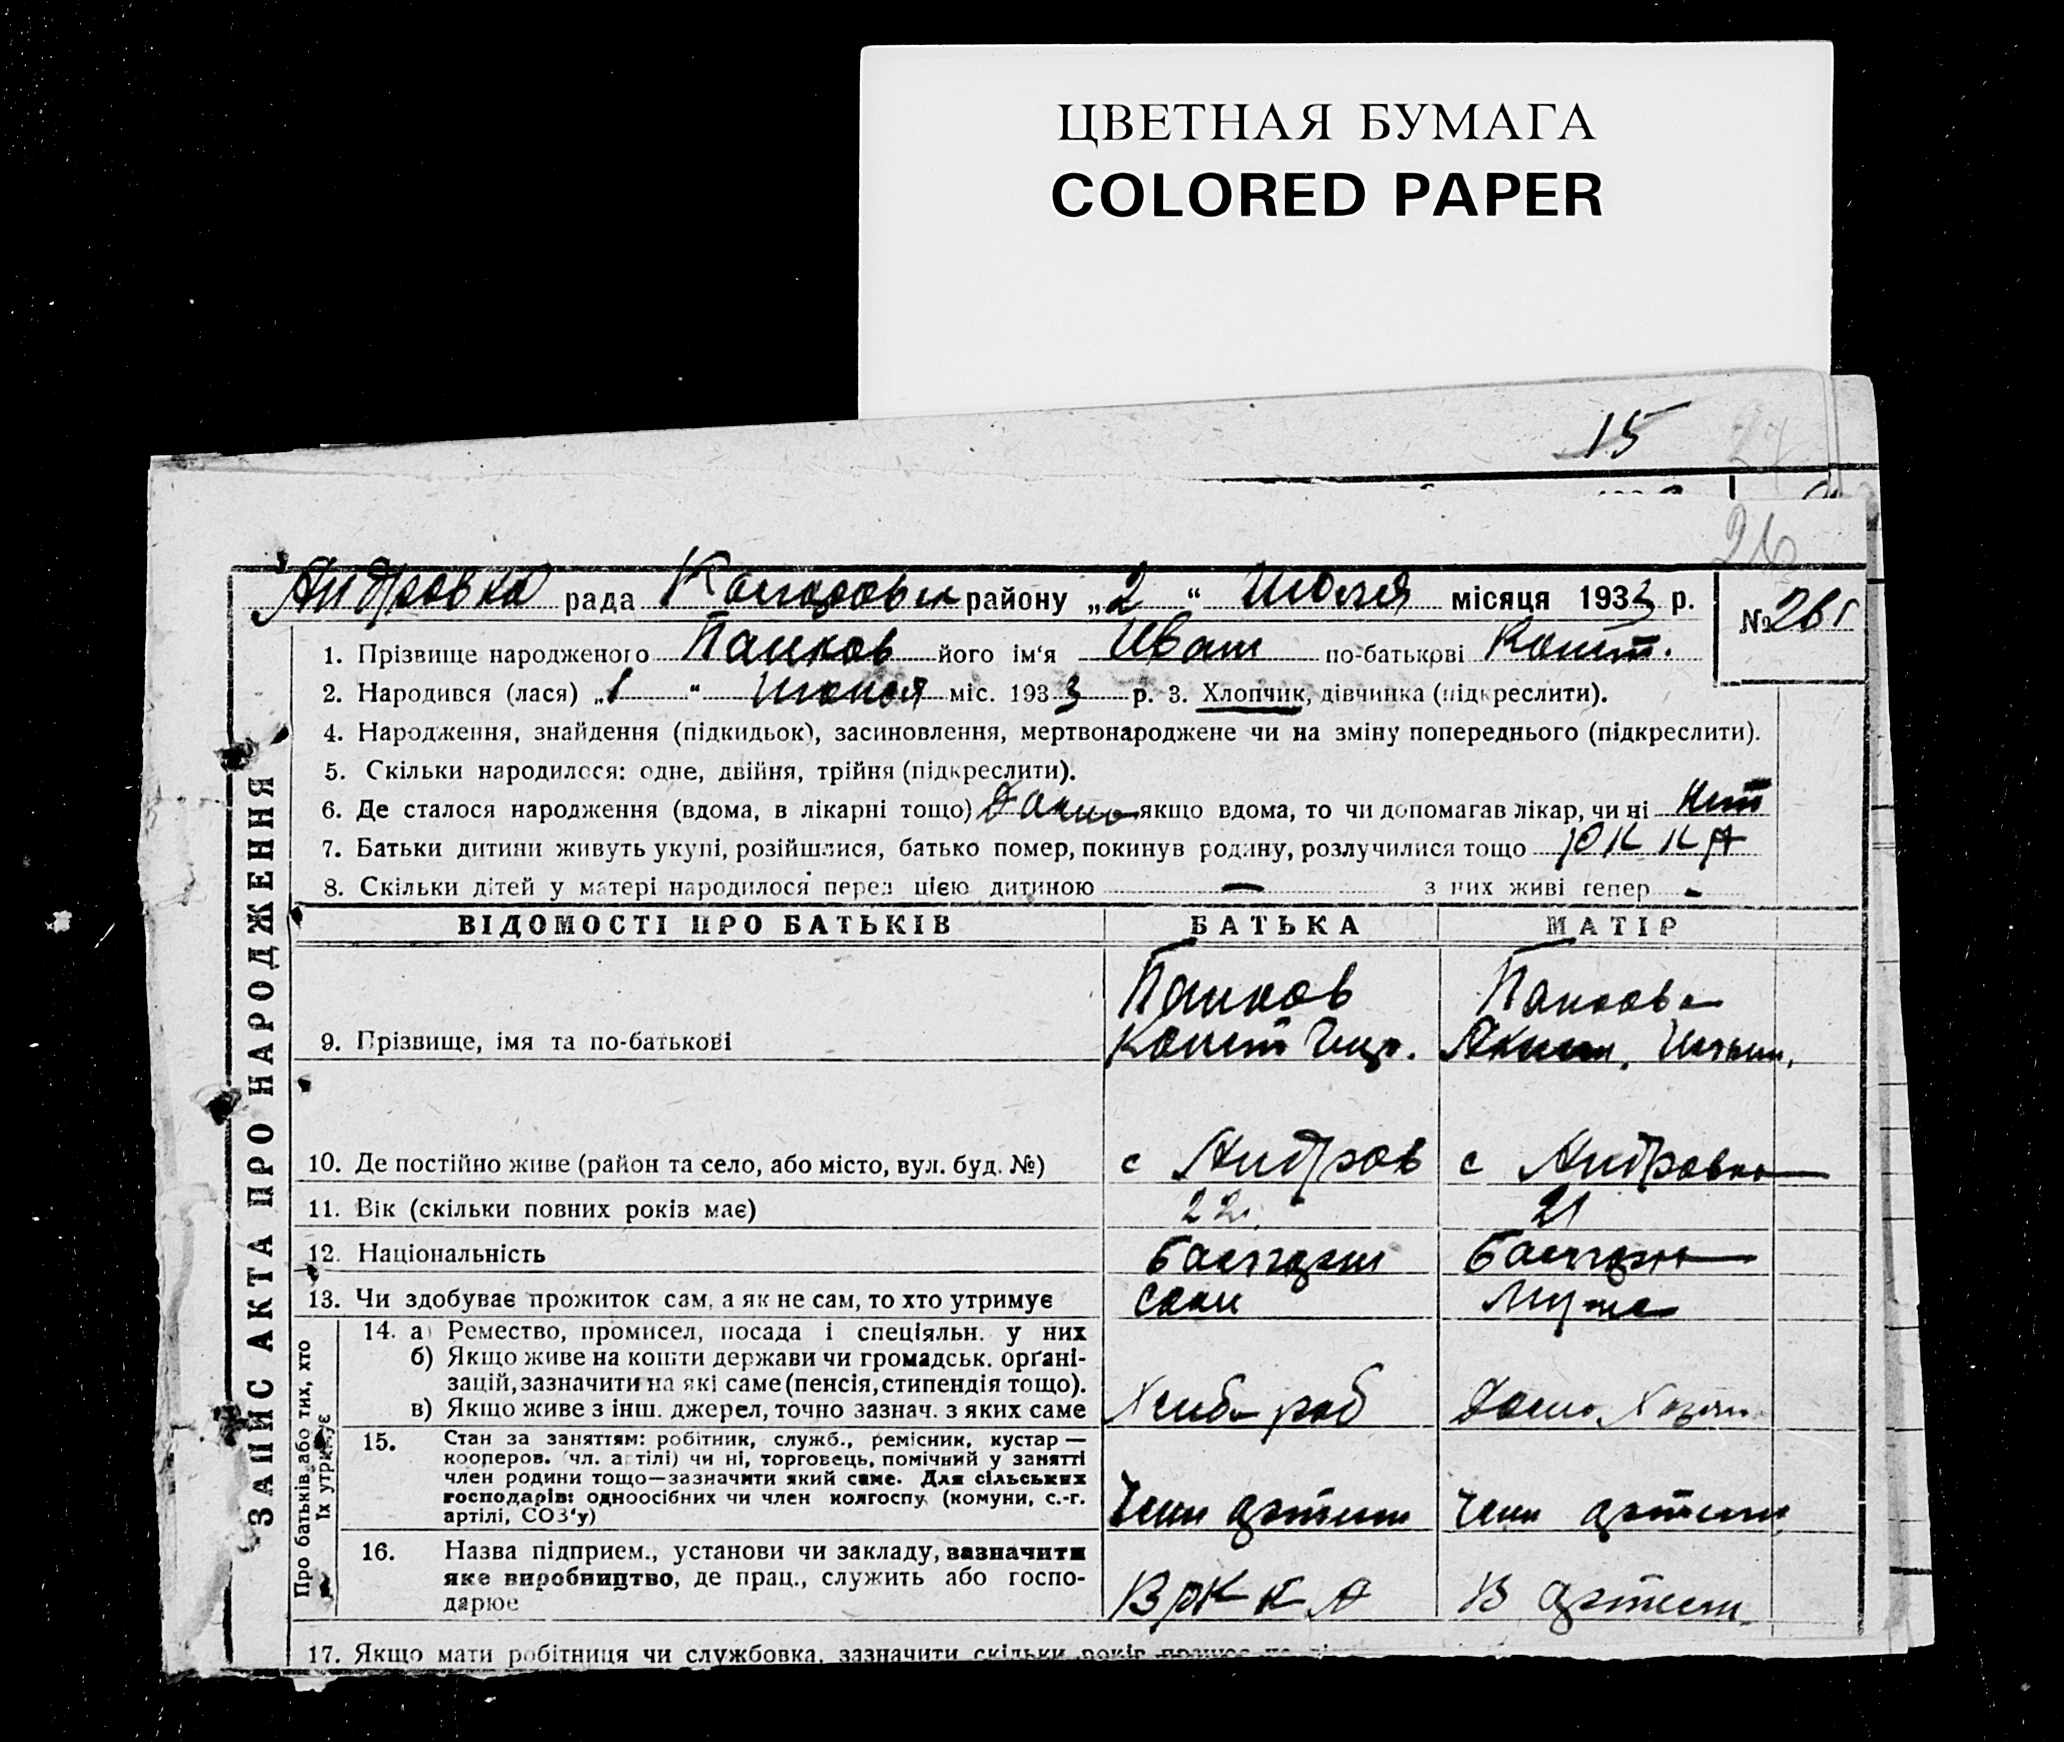 ЦВЕТНАЯ БУМАГА
COLORED PAPER
15
26
Андровка рада району „2“ Июля місяця 1933 р.
№ 261
1. Прізвище народженого Панков його ім‘я Иван по-батькові Конст.
2. Народився (лася) „1“ міс. 1933 р. 3. Хлопчик, дівчинка (підкреслити).
4. Народження, знайдення (підкидьок), засиновлення, мертвонароджене чи на зміну попереднього (підкреслити).
5. Скільки народилося: одне, двійня, трійня (підкреслити).
6. Де сталося народження (вдома, в лікарні тощо) Дома якщо вдома, то чи допомагав лікар, чи ні Нет
7. Батьки дитини живуть укупі, розійшлися, батько помер, покинув родину, розлучилися тощо РККА
8. Скільки дітей у матері народилося перед цією дитиною — з них живі тепер -
ВІДОМОСТІ ПРО БАТЬКІВ БАТЬКА МАТІР
Панков Панкова
9. Прізвище, імя та по-батькові Конст
10. Де постійно живе (район та село, або місто, вул. буд. №) с Андров с Андровка
11. Вік (скільки повних років має) 22 21
12. Національність Болгарин Болгарка
13. Чи здобуває прожиток сам, а як не сам, то хто утримує Сам Мужа
14. а) Ремество, промисел, посада і спеціяльн. у них
б) Якщо живе на кошти держави чи громадськ. органі-
зацій, зазначити на які саме (пенсія, стипендія тощо).
в) Якщо живе з інш. джерел, точно зазнач. з яких саме Хлебороб Дом. Хозяй
15. Стан за заняттям: робітник, служб., ремісник, кустар —
кооперов. (чл. артілі) чи ні, торговець, помічний у занятті
член родини тощо—зазначити який саме. Для сільських
господарів: одноосібних чи член колгоспу (комуни, с.-г.
артілі, СОЗ‘у) Член артели Член артели
16. Назва підприєм., установи чи закладу, зазначити
яке виробництво, де прац., служить або госпо-
дарює В РККА В артели
17. Якщо мати робітниця чи службовка, зазначити скільки років працює
ЗАПИС АКТА ПРО НАРОДЖЕННЯ
Про батьків або тих, хто
їх утримує